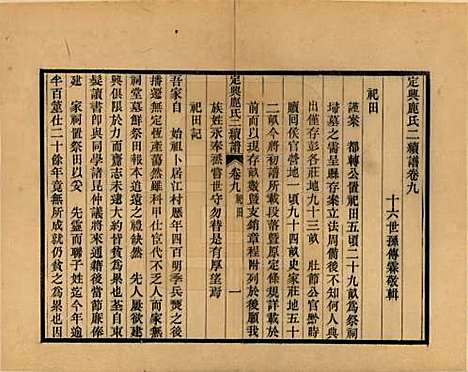 定興鹿氏二續譜卷九
十六世孫傳霖敬輯
祀田
謹案 都轉公置祀田五頃二十九畝為祭祠
墳墓之需呈縣存案立法周備後不知何人典
出僅存彭各莊地九十三畝 壯節公官黔時
贖回侯官營地一頃九十四畝史家莊地五十
二畝今將初譜所載段落暨原定條規詳載於
前而以現存畝數暨支銷章程附列於後願我
族姓永奉派當世守勿替是有厚望焉
祀田記
定興鹿氏二續譜 卷九 祀田 一
吾家自 始祖卜居江村歷年四百明季兵燹之後
播遷無恆產蕩然雖科甲仕宦代不乏人而家無
祠堂墓鮮祭田報本追遠之禮大缺先人屢欲建
興俱限於力而齎志未遂大約皆貧為祟也至今年
髮讀書即與同學諸昆仲議將來通籍後當節廉俸
建 家祠置祀田以安 先靈而聯子姓迄今年逾
半百筮仕二十餘年竟未成就仍貧之為祟也年